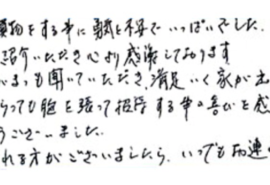 買物をする事に勇気と不安でいっぱいでした。
紹介いただき心より感謝しております
いまっも聞いていただき、満足いく家が
らっても胸を張って招待する事の喜びを感
うございました。
れる方がございましたら、いつでも